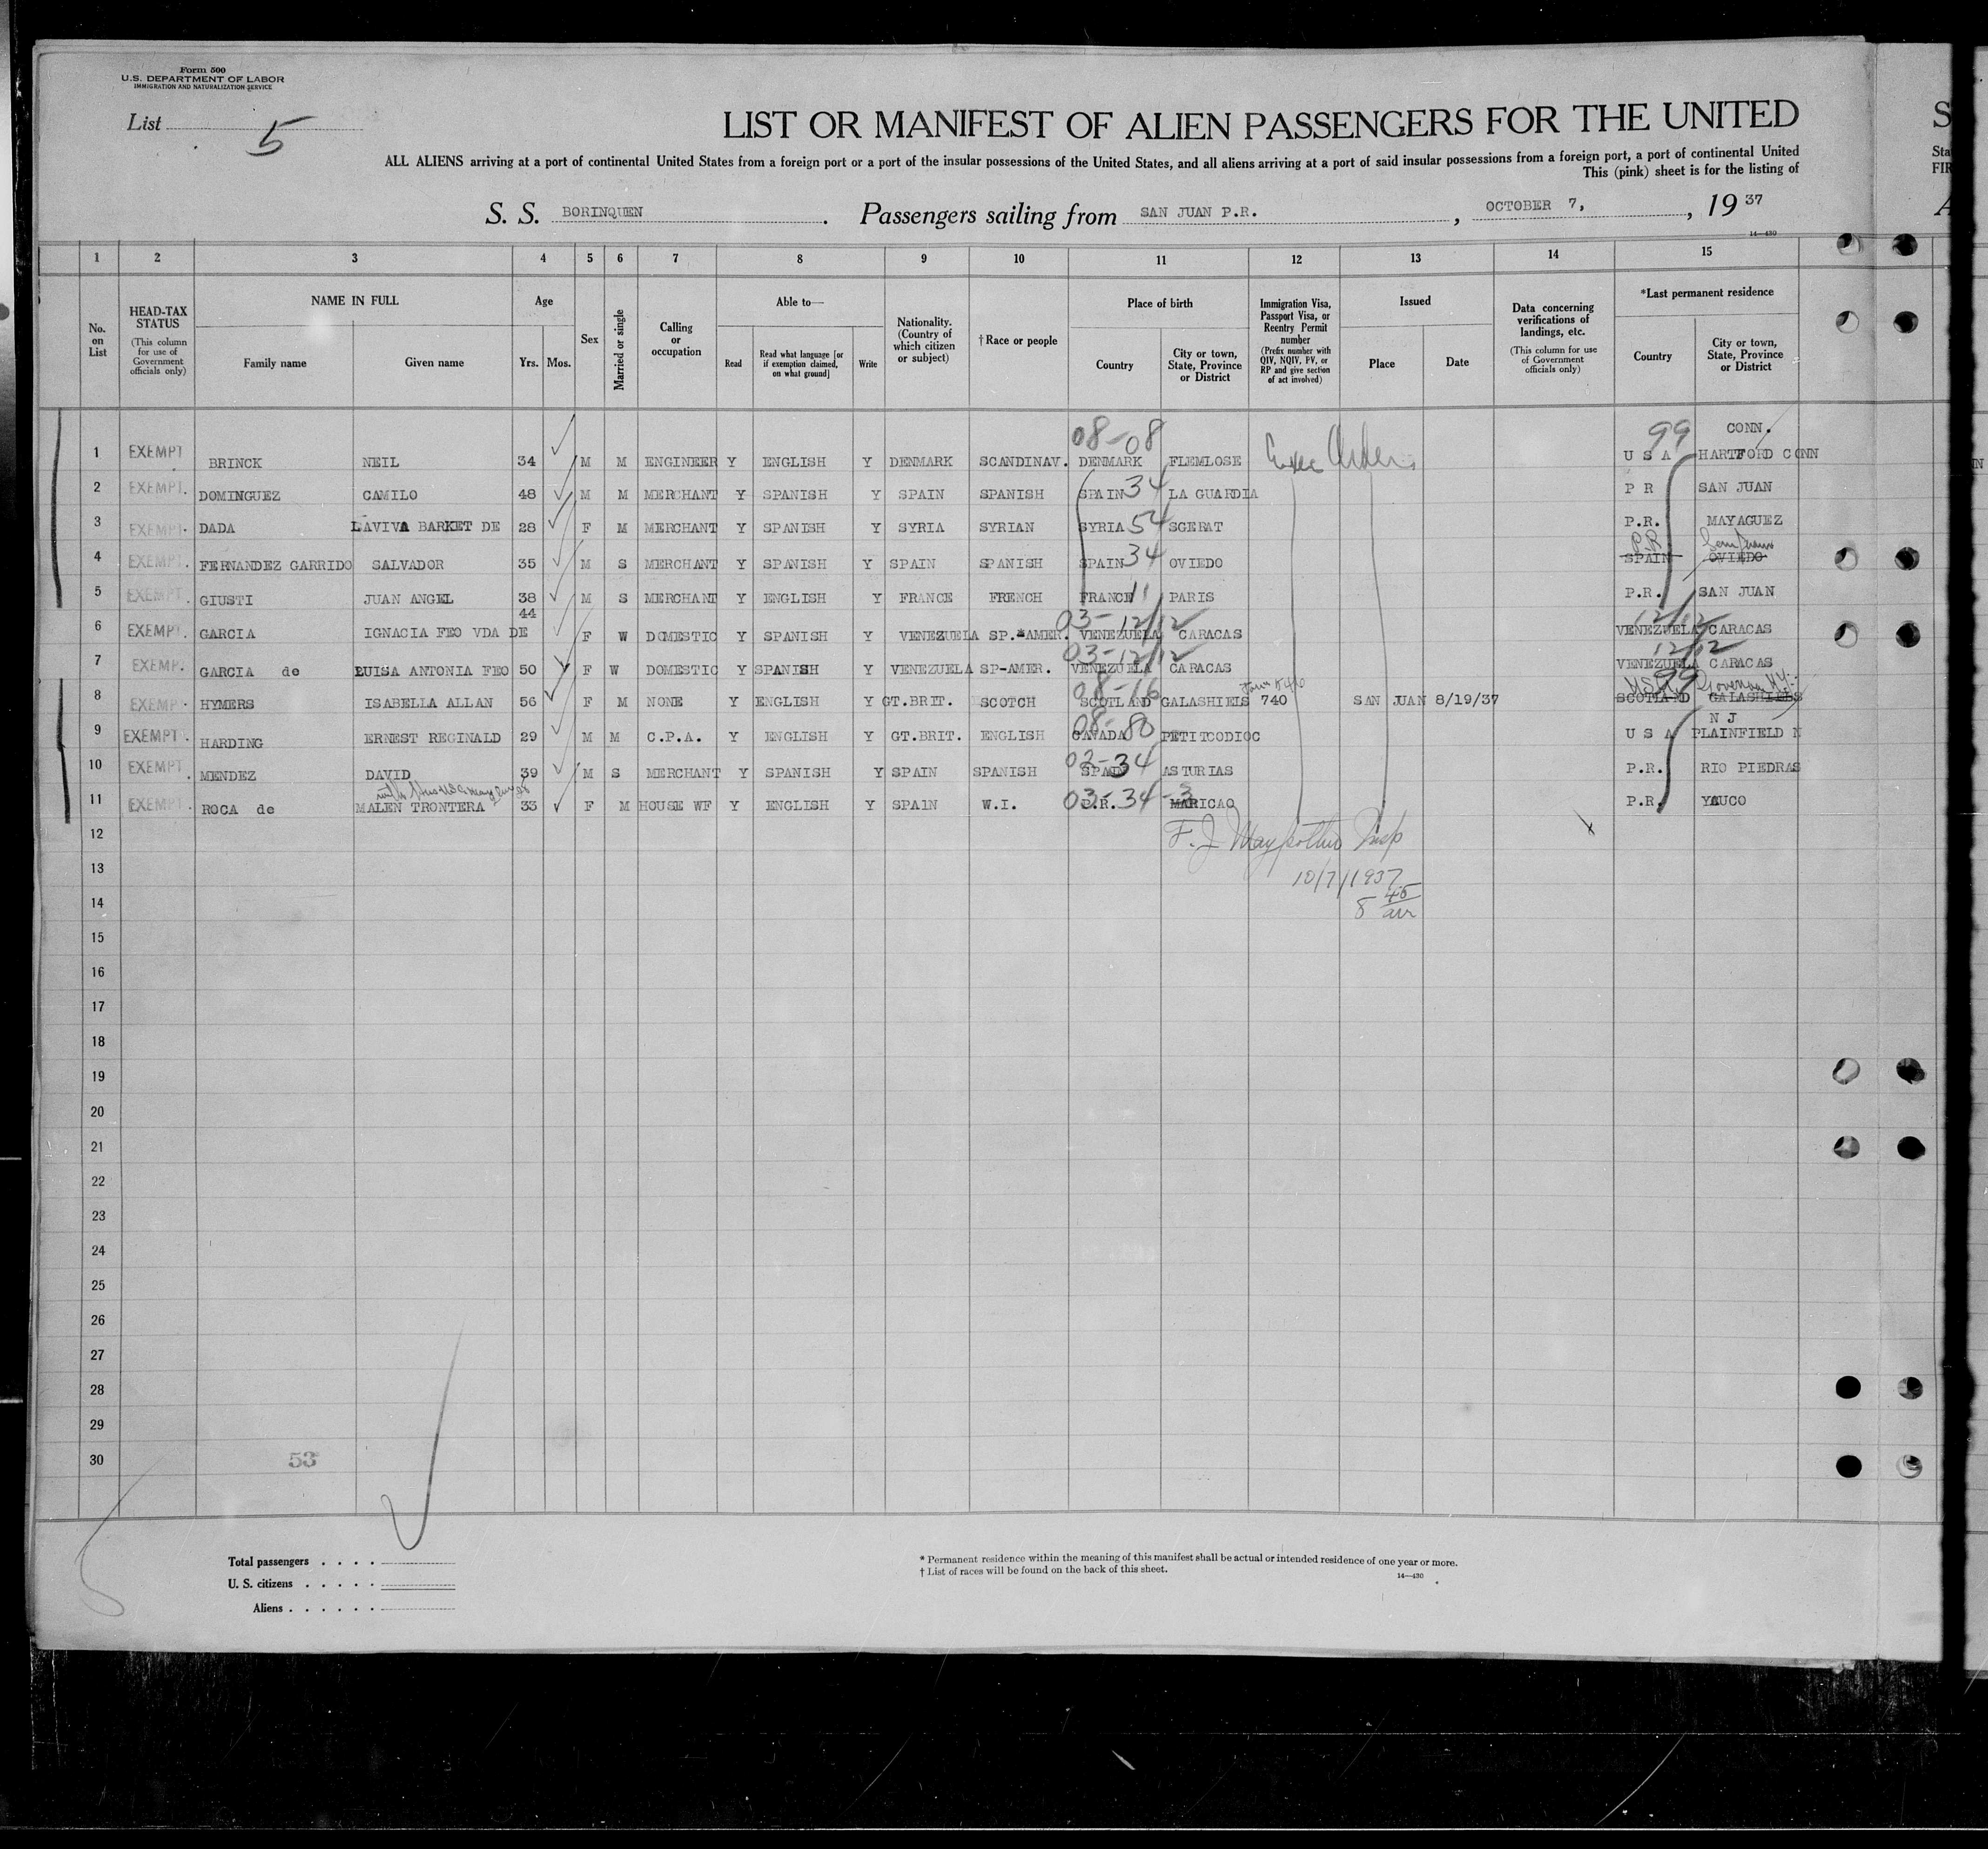 Form 500
U.S. DEPARTMENT OF LABOR
IMMIGRATION AND NATURALIZATION SERVICE
List 5
LIST OR MANIFEST OF ALIEN PASSENGERS FOR THE UNITED
ALL ALIENS arriving at a port of continental United States from a foreign port or a port of the insular possessions of the United States, and all aliens arriving at a port of said insular possessions from a foreign port, a port of continental United
This (pink) sheet is for the listing of
S. S. BORINQUEN. Passengers sailing from SAN JUAN P.R., OCTOBER 7, , 19 37
14—430
1 2 3 4 5 6 7 8 9 10 11 12 13 14 15
No. on List
HEAD-TAX STATUS (This column for use of Government officials only)
NAME IN FULL
Family name Given name
Age
Yrs. Mos.
Sex
Married or single
Calling or occupation
Able to—
Read
Read what language [or if exemption claimed, on what ground]
Write
Nationality. (Country of which citizen or subject)
† Race or people
Place of birth
Country
City or town, State, Province or District
Immigration Visa, Passport Visa, or Reentry Permit number (Prefix number with QIV, NQIV, PV, or RP and give section of act involved)
Issued
Place Date
Data concerning verifications of landings, etc. (This column for use of Government officials only)
*Last permanent residence
Country
City or town, State, Province or District
08-08 99 CONN.
1 EXEMPT BRINCK NEIL 34 M M ENGINEER Y ENGLISH Y DENMARK SCANDINAV. DENMARK FLEMLOSE Exec Order U S A HARTFORD CONN
2 EXEMPT. DOMINGUEZ CAMILO 48 M M MERCHANT Y SPANISH Y SPAIN SPANISH SPAIN 34 LA GUARDIA P R SAN JUAN
3 EXEMPT. DADA LAVIVA BARKET DE 28 F M MERCHANT Y SPANISH Y SYRIA SYRIAN SYRIA 54 SGERAT P.R. MAYAGUEZ
P.R. San Juan
4 EXEMPT. FERNANDEZ GARRIDO SALVADOR 35 M S MERCHANT Y SPANISH Y SPAIN SPANISH SPAIN 34 OVIEDO SPAIN OVIEDO
5 EXEMPT. GIUSTI JUAN ANGEL 38 M S MERCHANT Y ENGLISH Y FRANCE FRENCH FRANCE 11 PARIS P.R. SAN JUAN
44 03-12/12 12/12
6 EXEMPT. GARCIA IGNACIA FEO VDA DE F W DOMESTIC Y SPANISH Y VENEZUELA SP.-AMER. VENEZUELA CARACAS VENEZUELA CARACAS
03-12/12 12/12
7 EXEMP. GARCIA de LUISA ANTONIA FEO 50 F W DOMESTIC Y SPANISH Y VENEZUELA SP-AMER. VENEZUELA CARACAS VENEZUELA CARACAS
08-16 USA 99
8 EXEMPT. HYMERS ISABELLA ALLAN 56 F M NONE Y ENGLISH Y GT.BRIT. SCOTCH SCOTLAND GALASHIELS 740 SAN JUAN 8/19/37 SCOTLAND GALASHIELS
08-80 N J
9 EXEMPT. HARDING ERNEST REGINALD 29 M M C.P.A. Y ENGLISH Y GT.BRIT. ENGLISH CANADA PETITCODIOC U S A PLAINFIELD N
10 EXEMPT. MENDEZ DAVID 39 M S MERCHANT Y SPANISH Y SPAIN SPANISH 02-34 SPAIN ASTURIAS P.R. RIO PIEDRAS
11 EXEMPT. ROCA de MALEN TRONTERA 33 F M HOUSE WF Y ENGLISH Y SPAIN W.I. 03-34-3 P.R. MARICAO P.R. YAUCO
12
13
14
F. J. Insp
10/7/1937
8 45
15
16
17
18
19
20
21
22
23
24
25
26
27
28
29
30 53
Total passengers . . . .
U. S. citizens . . . . .
Aliens . . . . . .
* Permanent residence within the meaning of this manifest shall be actual or intended residence of one year or more.
† List of races will be found on the back of this sheet.
14—430
S
Sta
FIR
A